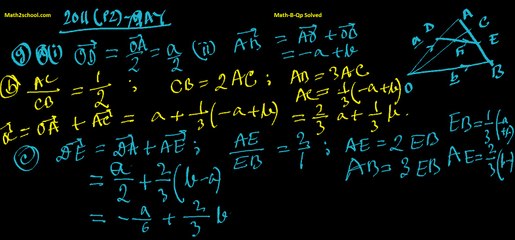 Math2school.com
2011 (P2)-9 MAY
Math-B-Qp Solved
9 (a)(i) OD = OA/2 = a/2 (ii) AB = AO + OB
= -a + b
(b) AC/CB = 1/2 ; CB = 2AC ; AB = 3AC
AC = 1/3(-a+b)
OC = OA + AC = a + 1/3(-a+b) = 2/3 a + 1/3 b.
(c) DE = DA + AE ; AE/EB = 2/1 ; AE = 2EB
AB = 3EB
= a/2 + 2/3(b-a)
= -a/6 + 2/3 b
A
C
D
E
O
b
B